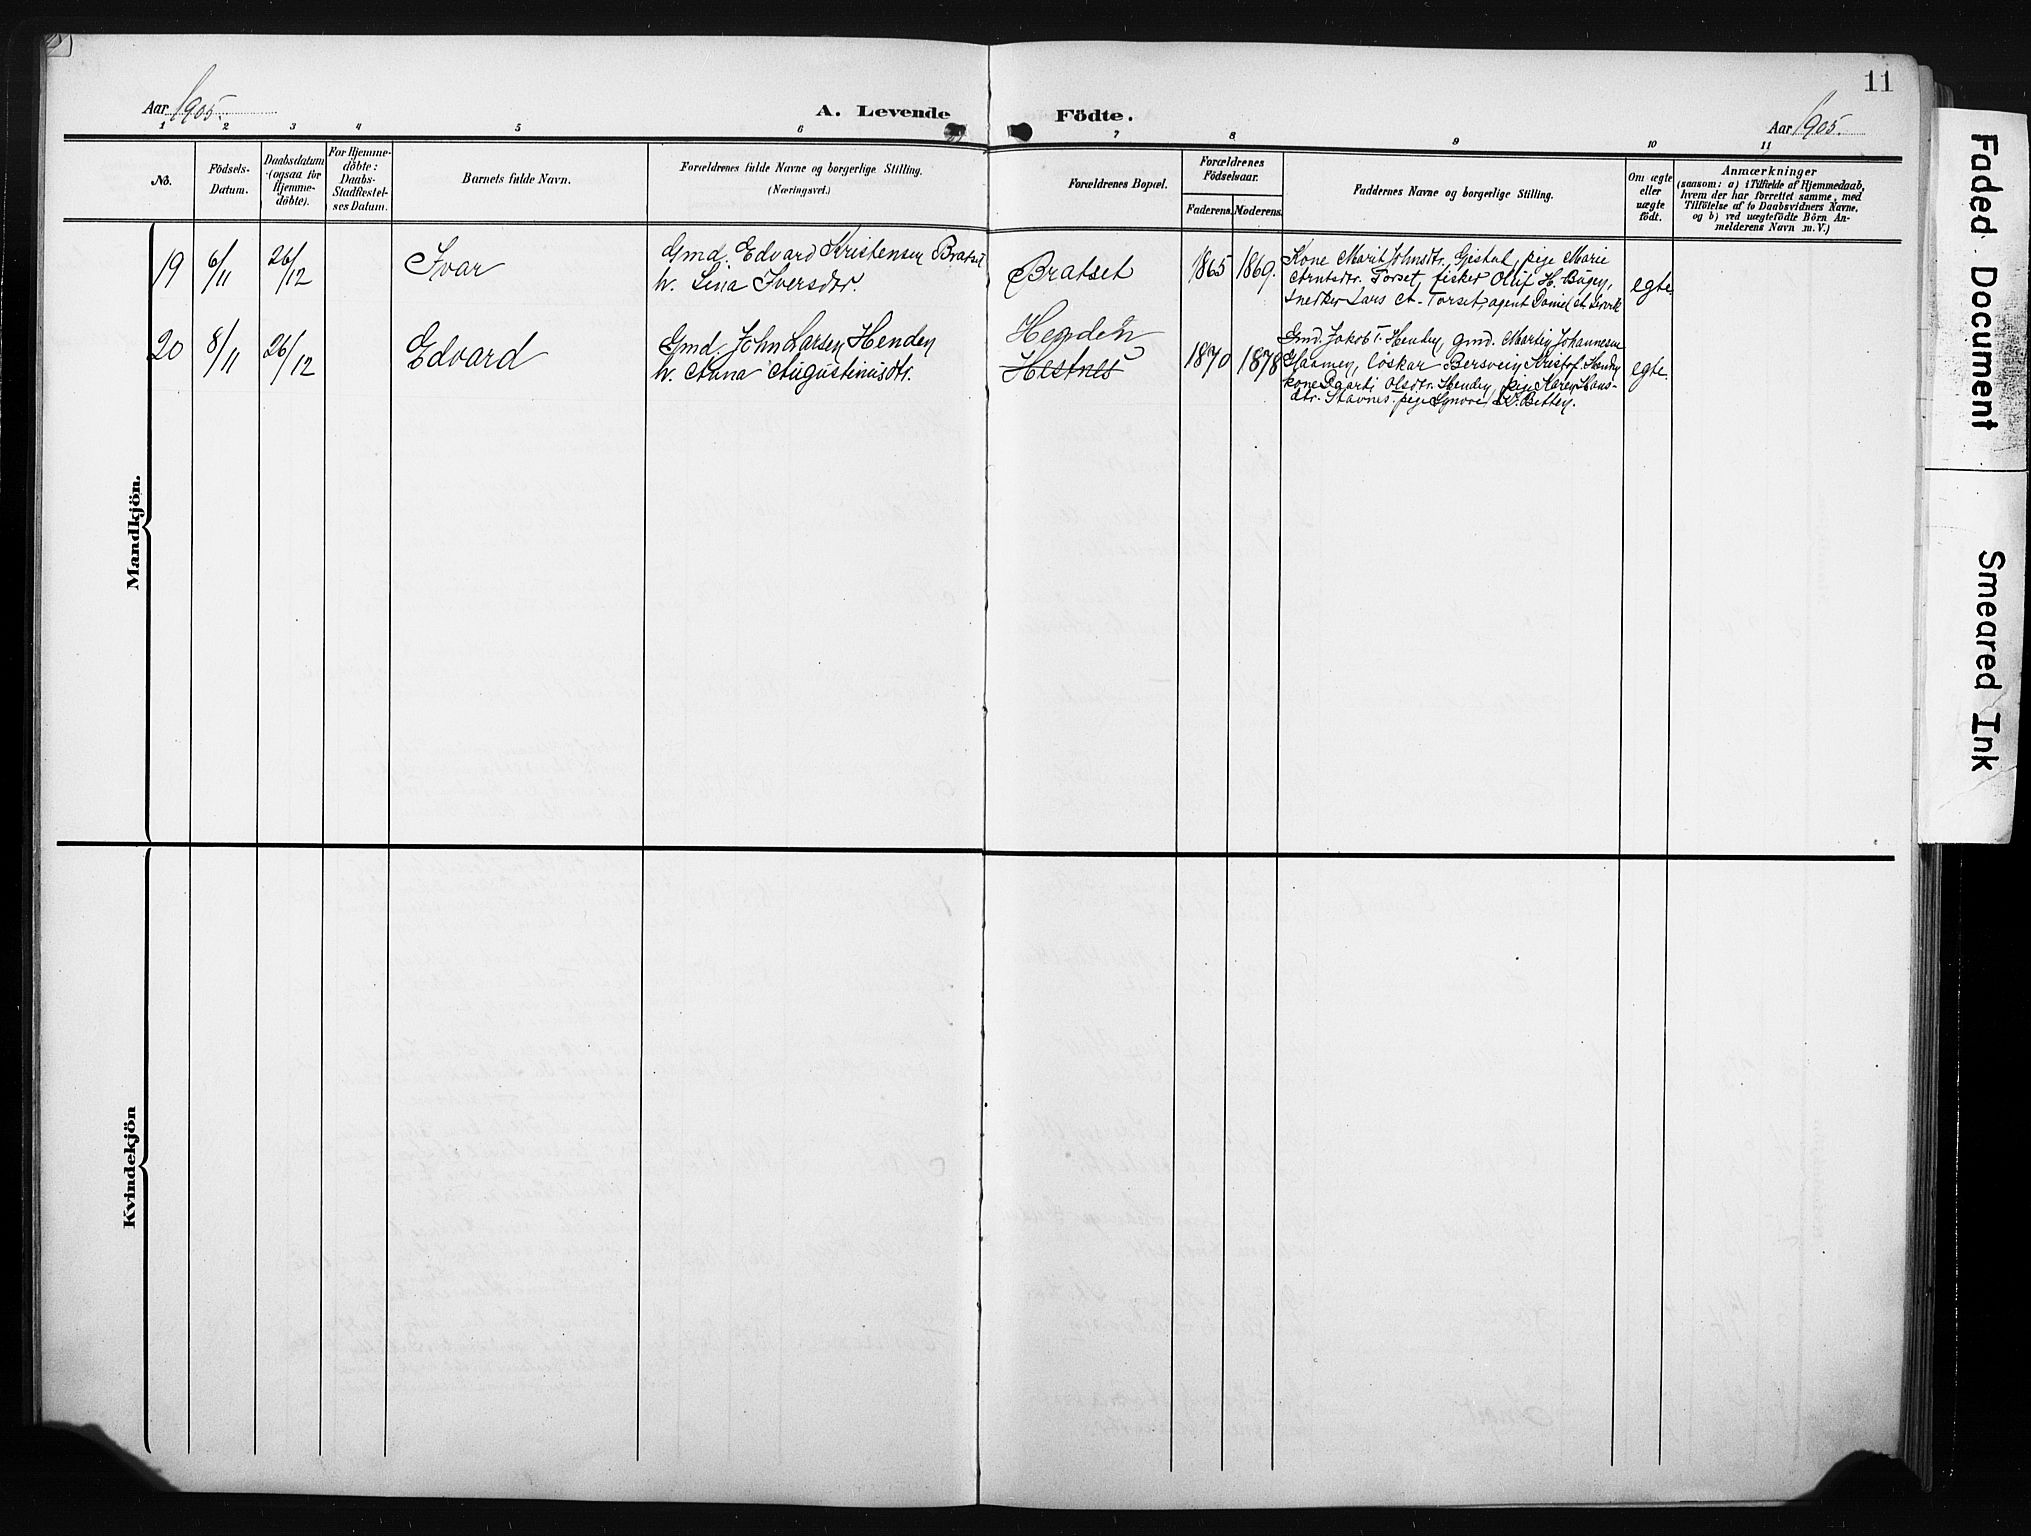 11
Aar 1905.
A. Levende Födte.
Aar 1905.
1 2 3 4 5 6 7 8 9 10 11
No.
Födsels-
Datum.
Daabsdatum
(ogsaa for
Hjemme-
döbte).
For Hjemme-
döbte:
Daabs-
Stadfæstel-
ses Datum.
Barnets fulde Navn.
Forældrenes fulde Navne og borgerlige Stilling.
(Næringsvei.)
Forældrenes Bopæl.
Forældrenes
Födselsaar.
Faderens. Moderens.
Faddernes Navne og borgerlige Stilling.
Om ægte
eller
uægte
födt.
Anmærkninger
(saasom: a) i Tilfælde af Hjemmedaab,
hvem der har forrettet samme, med
Tilföielse af to Daabsvidners Navne,
og b) ved uægtefödte Börn An-
melderens Navn m. V.)
Mandkjön.
19 6/11 26/12 Ivar
Gmd. Edvard Kristensen Bratset
h. Lina Iversdtr.
Bratset
1865 1869.
Kone Marit Johnsdtr. Gistal, pige Marie
Arntsdtr. Torset, fisker Oluf H. Bögen,
snedker Lars A. Torset, agent Daniel A. Lervik
egte.
20 8/11 26/12 Edvard
Gmd. John Larsen Henden
h. Anna Augustinusdtr.
Henden
Hestnes
1870 1878
Gmd. Jakob T. Henden, gmd. Martin Johannesen
Haamen, löskar Bersvein Kristof. Henden
kone Olsdtr. Henden, pige Karen Hans-
dtr. Stavnes. pige Synove Betten.
egte.
Kvindekjön
Faded Document
Smeared Ink